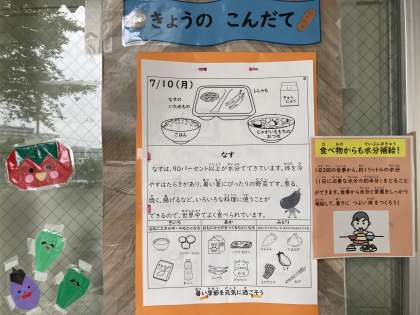 きょうの こんだて
7/10(月)
なすの
いためもの
ししゃも
ぎゅう
にゅう
ごはん
じゃがいももちの
おつゆ
なす
なすは、90パーセント以上が水分でできています。体を冷
やすはたらきがあり、暑い夏にぴったりの野菜です。煮る、
焼く、揚げるなど、いろいろな料理に使うことが
できるので、世界中でよく食べられています。
きいろ
あか
みどり
暑い季節を元気に過ごそう
食べ物からも水分補給!
1日3回の食事から、約1リットルの水分
(1日に必要な水分の約半分)をとること
ができます。食事から水分と栄養をしっかり
補給して、暑さに つよい 体を つくろう!